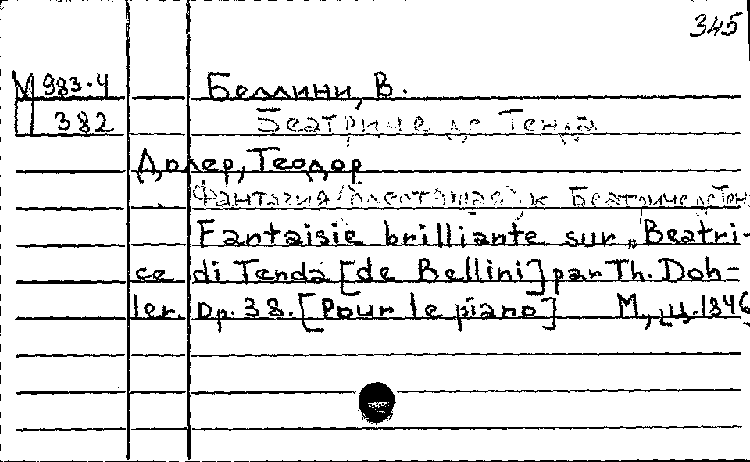 345
М 983-4 Беллини, В.
382 Беатриче де Тенда
Долер, Теодор
Фантазия /блестящая/ к Беатриче де Тен
Fantaisie brilliante sur „Beatri-
ce di Tenda [de Bellini] par Th. Doh-
ler. Op. 38. [Pour le piano] М., ц. 1846